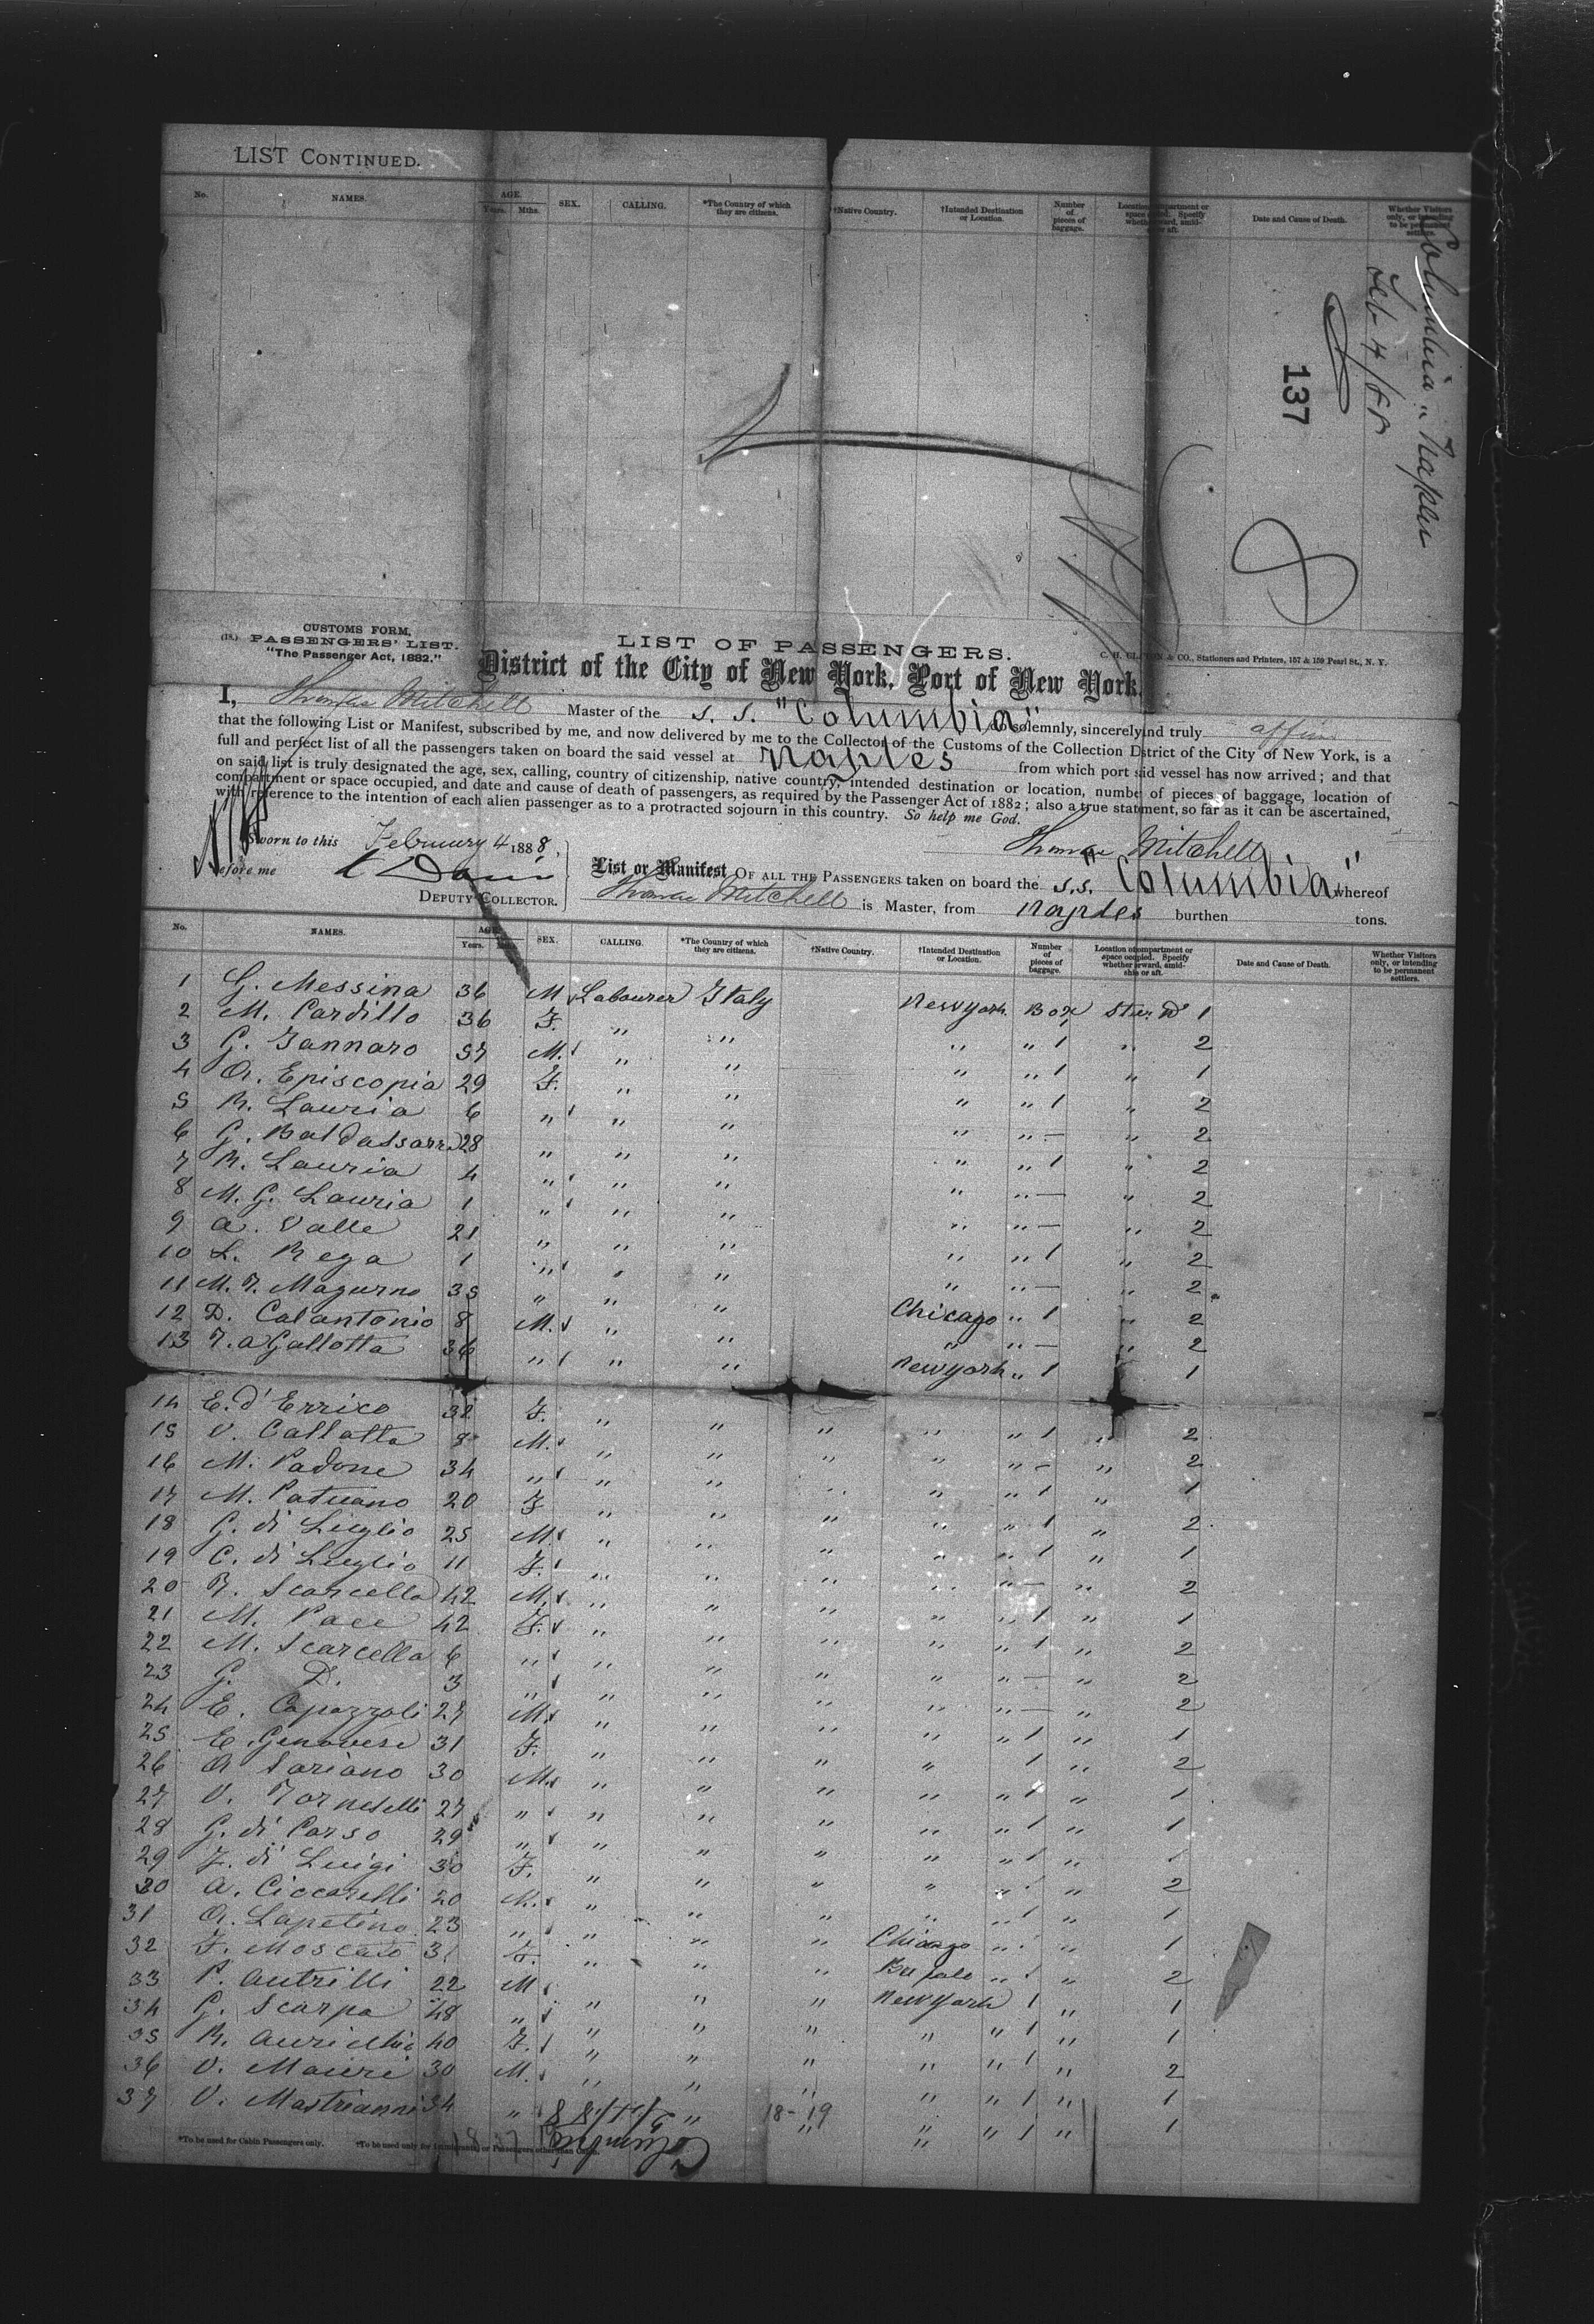 LIST CONTINUED.
No. NAMES. AGE. Years. Mths. SEX. CALLING. *The Country of which they are citizens. †Native Country. †Intended Destination or Location. Number of pieces of baggage. Location of compartment or space occupied. Specify whether forward, amidship or aft. Date and Cause of Death. Whether Visitors only, or intending to be permanent settlers.
Columbia " Naples
Feb 4/88
137
8
CUSTOMS FORM,
PASSENGERS' LIST.
"The Passenger Act, 1882."
LIST OF PASSENGERS.
C. H. & CO., Stationers and Printers, 157 & 159 Pearl St., N. Y.
District of the City of New York, Port of New York.
I, Thomas Mitchell Master of the S. S. "Columbia" do solemnly, sincerely and truly affirm
that the following List or Manifest, subscribed by me, and now delivered by me to the Collector of the Customs of the Collection District of the City of New York, is a
full and perfect list of all the passengers taken on board the said vessel at Naples from which port said vessel has now arrived; and that
on said list is truly designated the age, sex, calling, country of citizenship, native country, intended destination or location, number of pieces of baggage, location of
compartment or space occupied, and date and cause of death of passengers, as required by the Passenger Act of 1882; also a true statement, so far as it can be ascertained,
with reference to the intention of each alien passenger as to a protracted sojourn in this country. So help me God.
Sworn to this February 4 1888, Thomas Mitchell
Before me
DEPUTY COLLECTOR.
List or Manifest OF ALL THE PASSENGERS taken on board the S.S. "Columbia" whereof
Thomas Mitchell is Master, from Naples burthen tons.
No. NAMES. AGE. Years. Mths. SEX. CALLING. *The Country of which they are citizens. †Native Country. †Intended Destination or Location. Number of pieces of baggage. Location of compartment or space occupied. Specify whether forward, amidship or aft. Date and Cause of Death. Whether Visitors only, or intending to be permanent settlers.
1 G. Messina 36 M Labourer Italy New york Box 1
2 M. Cardillo 36 F. " " " " 1 " 2
3 G. Jannaro 37 M. " " " " 1 " 1
4 A. Episcopia 29 F. " " " " 1 " 2
5 R. Lauria 6 " " " " " — " 2
6 G. Baldassarra 28 " " " " " 1 " 2
7 R. Lauria 4 " " " " " — " 2
8 M. G. Lauria 1 " " " " " — " 2
9 A. Valle 21 " " " " " 1 " 2
10 L. Rega 1 " " " " " — " 2
11 M. F. Magurno 35 " " " Chicago " 1 " 2
12 D. Calantonio 8 M. " " " " — " 2
13 F. a Gallotta 36 " " " New york " 1 1
14 E. d'Errico 32 F. " " " " " 1 " 2
15 V. Callatta 8 M. " " " " " — " 2
16 M. Padone 34 " " " " " " 1 " 1
17 M. 20 F " " " " " 1 " 2
18 G. di Luglio 25 M. " " " " " 1 " 1
19 C. di Luglio 11 F. " " " " " — " 2
20 F. Scarcella 42 M. " " " " " 1 " 1
21 M. Pace 42 F. " " " " " 1 " 2
22 M. Scarcella 6 " " " " " " — " 2
23 G. D. 3 " " " " " " — " 2
24 E. Capozzoli 27 M. " " " " " 1 " 1
25 E. Genovese 31 F. " " " " 1 " 2
26 A Soriano 30 M. " " " " " 1 " 1
27 V. 27 " " " " " " 1 " 1
28 G. di Corso 29 " " " " " " 1 " 1
29 F. di Luigi 30 F. " " " " " 1 " 2
30 A. Ciccarelli 20 M. " " " " " 1 " 1
31 A. Lapetino 23 " " " " Chicago " 1 " 1
32 F. Moscato 31 F. " " " " 1 " 2
33 P. Autrilli 22 M " " " New york 1 " 1
34 G. Scarpa 48 " " " " " " 1 " 1
35 R. 40 F. " " " " " 1 " 2
36 V. Mauri 30 M. " " " " " 1 " 1
37 V. Mastrianni 34 " " " " " 1 " 1
18-19
Columbia
*To be used for Cabin Passengers only. †To be used only for Immigrants or Passengers other than Cabin.